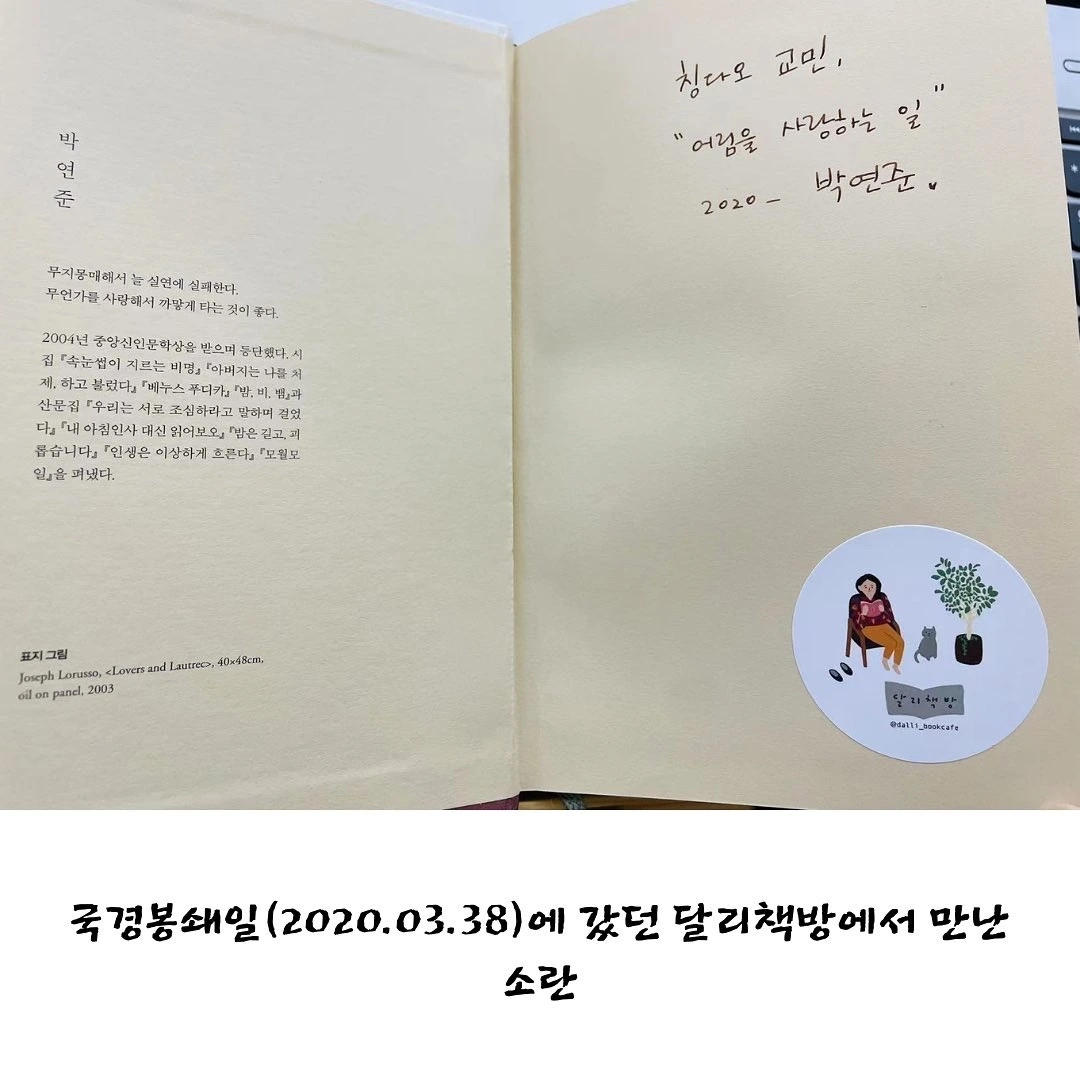 박
연
준
무지몽매해서 늘 실연에 실패한다.
무언가를 사랑해서 까맣게 타는 것이 좋다.
2004년 중앙신인문학상을 받으며 등단했다. 시
집 『속눈썹이 지르는 비명』 『아버지는 나를 처
제, 하고 불렀다』 『베누스 푸디카』 『밤, 비, 뱀』과
산문집 『우리는 서로 조심하라고 말하며 걸었
다』 『내 아침인사 대신 읽어보오』 『밤은 길고, 괴
롭습니다』 『인생은 이상하게 흐른다』 『모월모
일』을 펴냈다.
표지 그림
Joseph Lorusso, <Lovers and Lautrec>, 40×48cm,
oil on panel, 2003
칭다오 교민,
"어림을 사랑하는 일"
2020_ 박연준.
달리책방
@dalli_bookcafe
국경봉쇄일(2020.03.38)에 갔던 달리책방에서 만난
소란